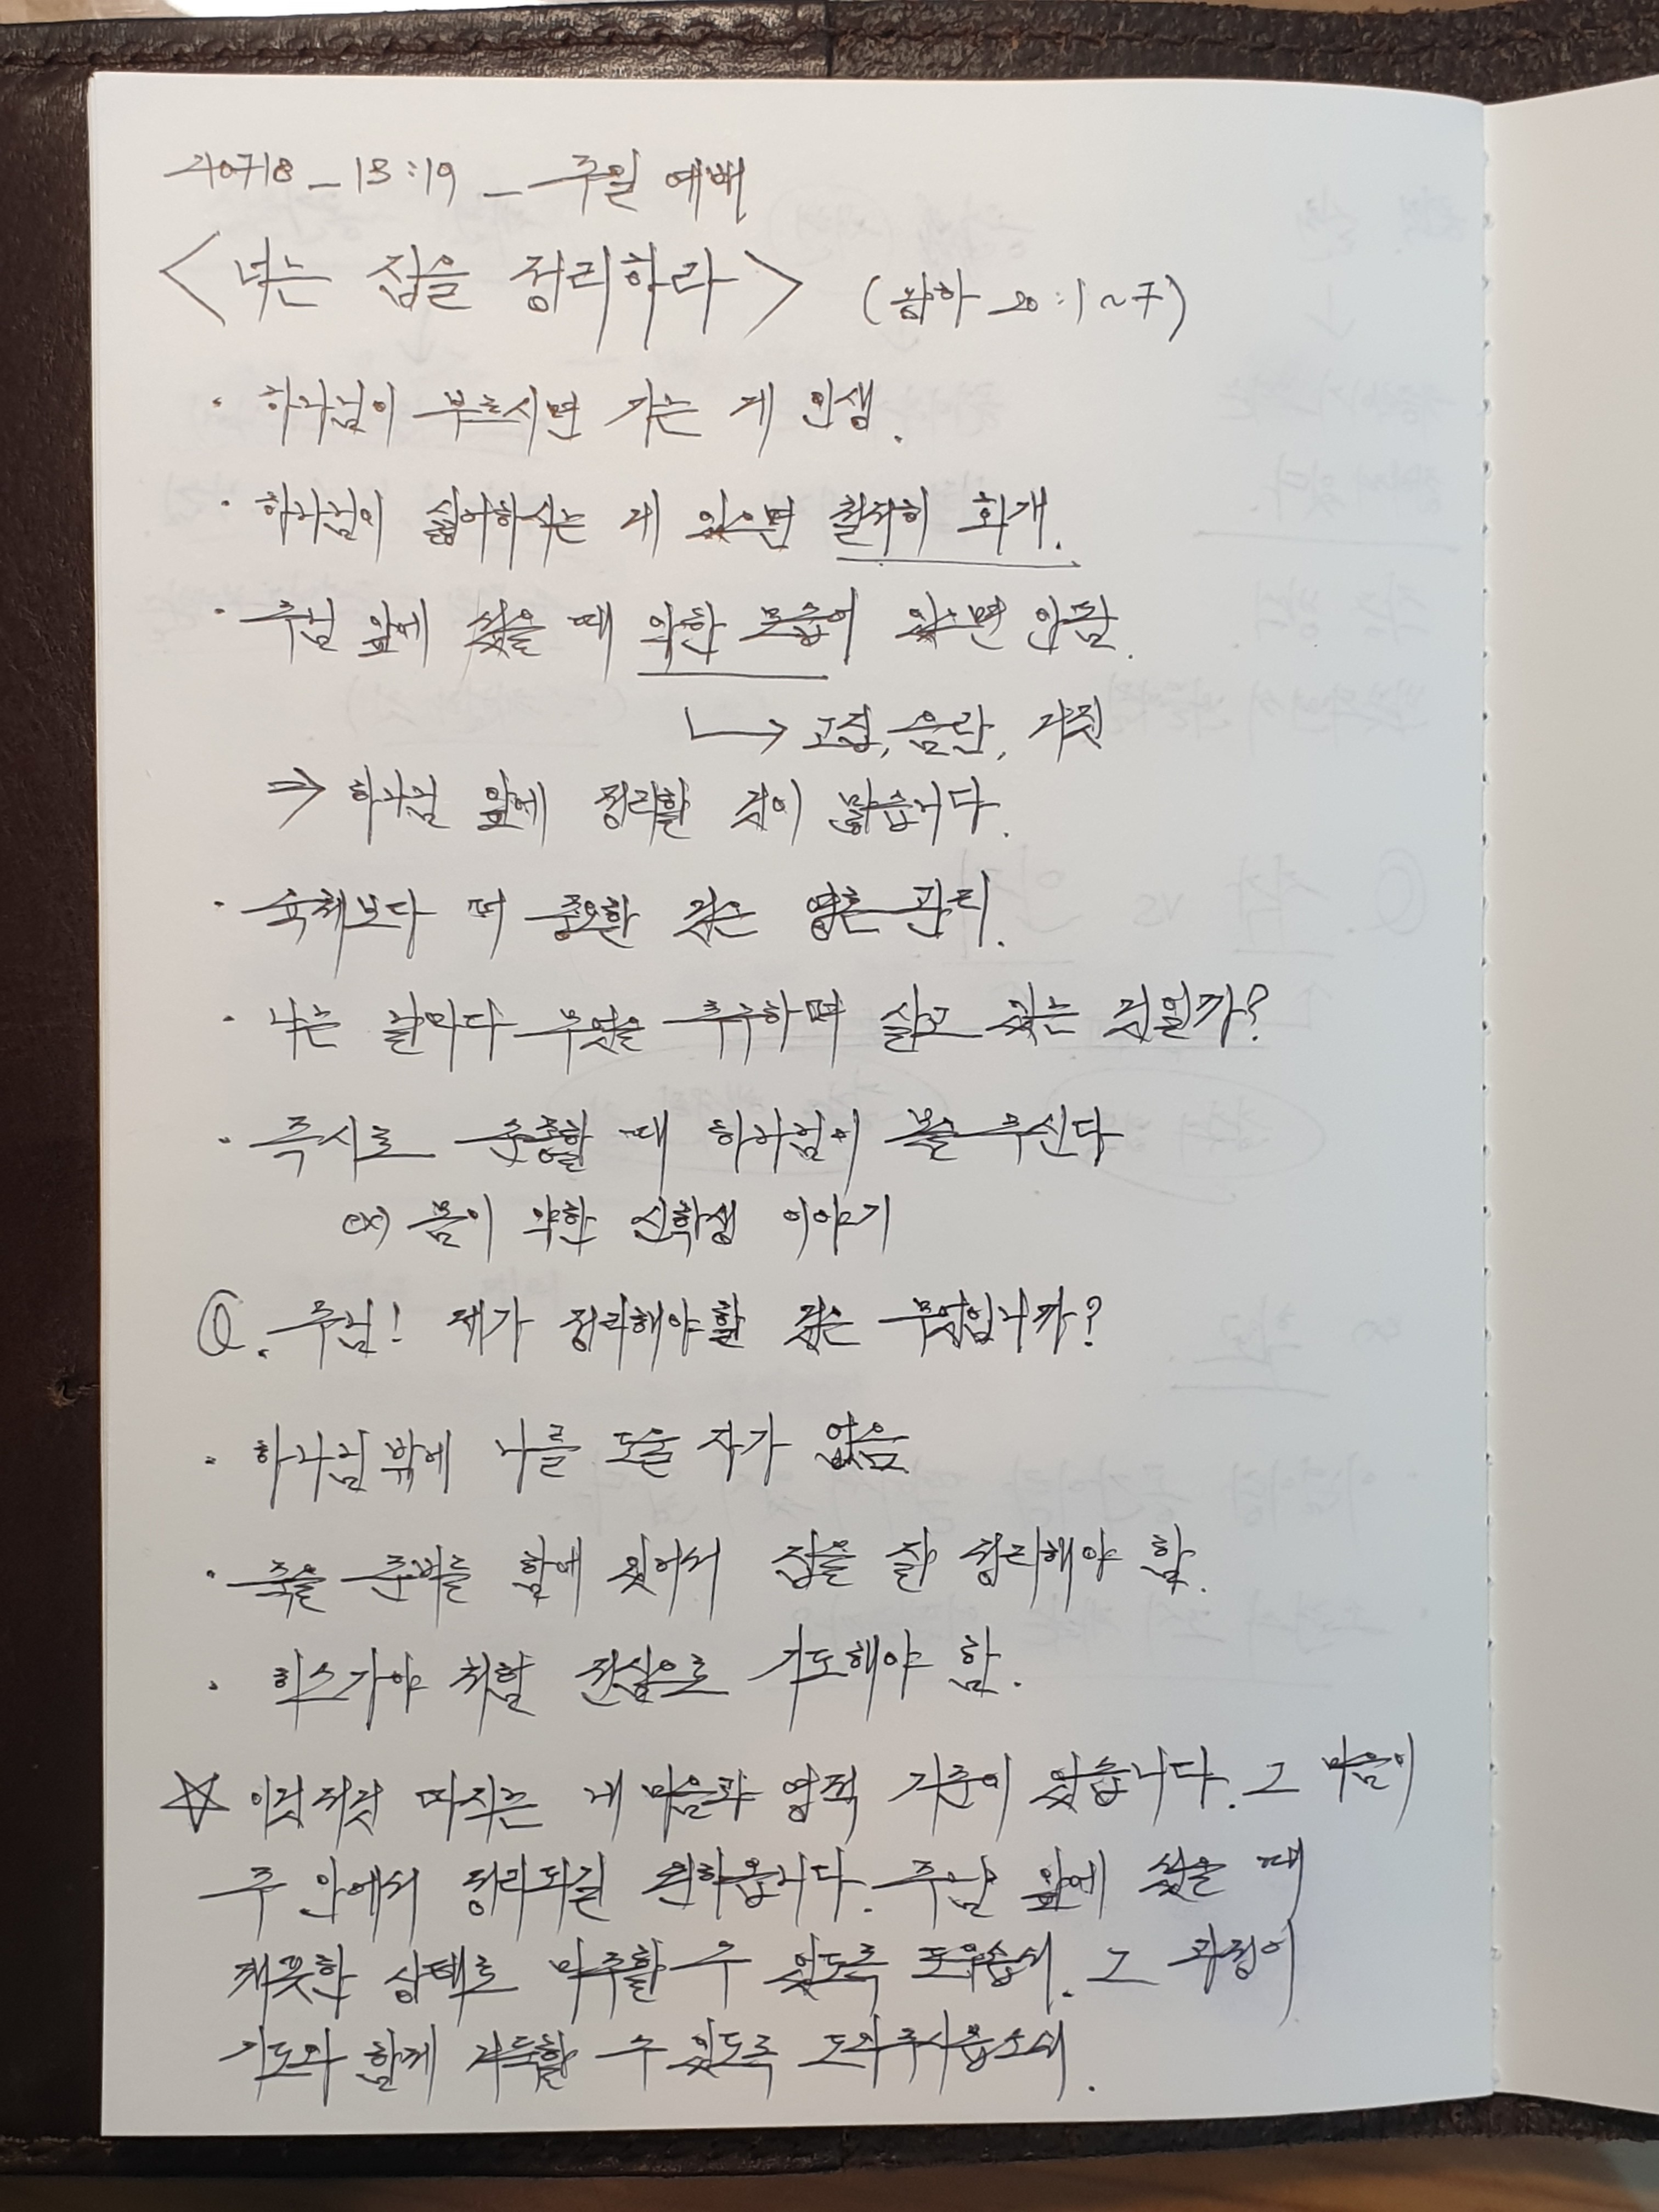 210718 _ 13:19 _ 주일 예배
<너는 집을 정리하라> (왕하 20:1~7)
· 하나님이 부르시면 가는 게 인생.
· 하나님이 싫어하시는 게 있으면 철저히 회개.
· 주님 앞에 섰을 때 악한 모습이 있으면 안됨.
↳ 고집, 음란, 거짓
⇒ 하나님 앞에 정리할 것이 많습니다.
· 육체보다 더 중요한 것은 영혼 관리.
· 나는 날마다 무엇을 추구하며 살고 있는 것일까?
· 즉시로 순종할 때 하나님이 복을 주신다
ex) 몸이 약한 신학생 이야기
Q. 주님! 제가 정리해야 할 것은 무엇입니까?
· 하나님 밖에 나를 도울 자가 없음
· 죽을 준비를 함에 있어서 집을 잘 정리해야 함.
· 히스기야 처럼 진실으로 기도해야 함.
☆ 이것저것 따지는 내 마음과 영적 기준이 있습니다. 그 마음이
주 안에서 정리되길 원하옵니다. 주님 앞에 섰을 때
깨끗한 상태로 마주할 수 있도록 도우소서. 그 과정이
기도와 함께 가득할 수 있도록 도와주시옵소서.